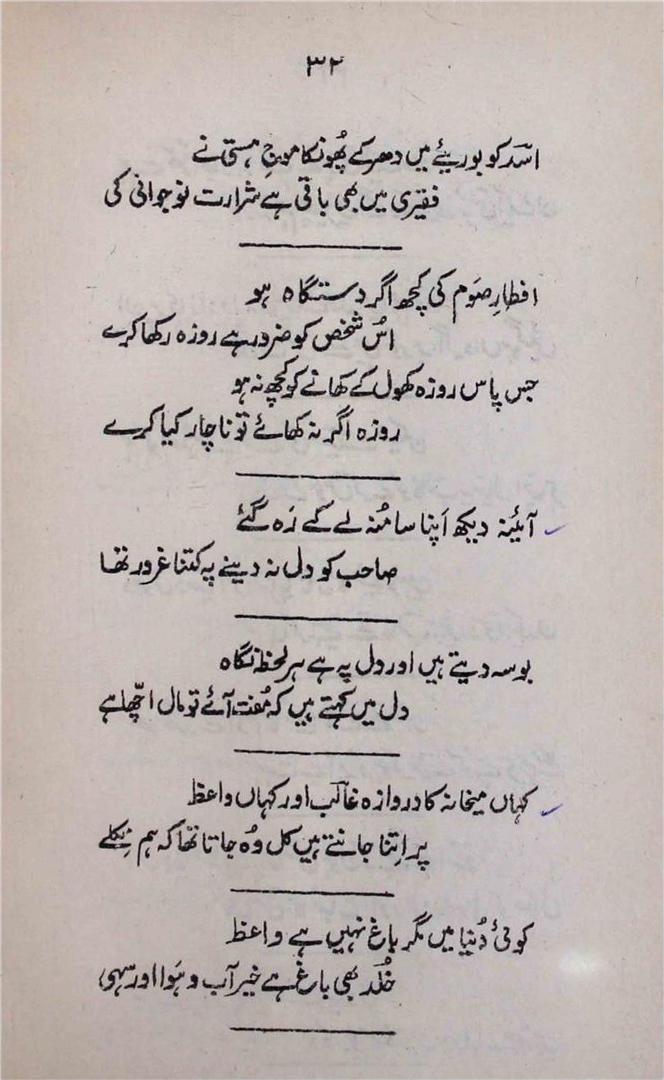 ۳۲
اسدؔ کو بوریئے میں دھر کے پُھونکا موجِ ہستی نے
فقیری میں بھی باقی ہے شرارت نوجوانی کی
افطارِ صَوم کی کچھ اگر دستگاہ ہو
اُس شخص کو ضرور ہے روزہ رکھا کرے
جس پاس روزہ کھول کے کھانے کو کچھ نہ ہو
روزہ اگر نہ کھائے تو ناچار کیا کرے
آئینہ دیکھ اَپنا سا مُنہ لے کے رَہ گئے
صاحب کو دل نہ دینے پہ کتنا غرور تھا
بوسہ دیتے ہیں اور دل پہ ہے ہر لحظہ نگاہ
دل میں کہتے ہیں کہ مُفت آئے تو مال اچّھا ہے
کہاں میخانہ کا دروازہ غالبؔ اور کہاں واعظ
پر اِتنا جانتے ہیں کل وہ جاتا تھا کہ ہم نِکلے
کوئی دُنیا میں مگر باغ نہیں ہے واعظ
خُلد بھی باغ ہے خیر آب و ہَوا اور سہی